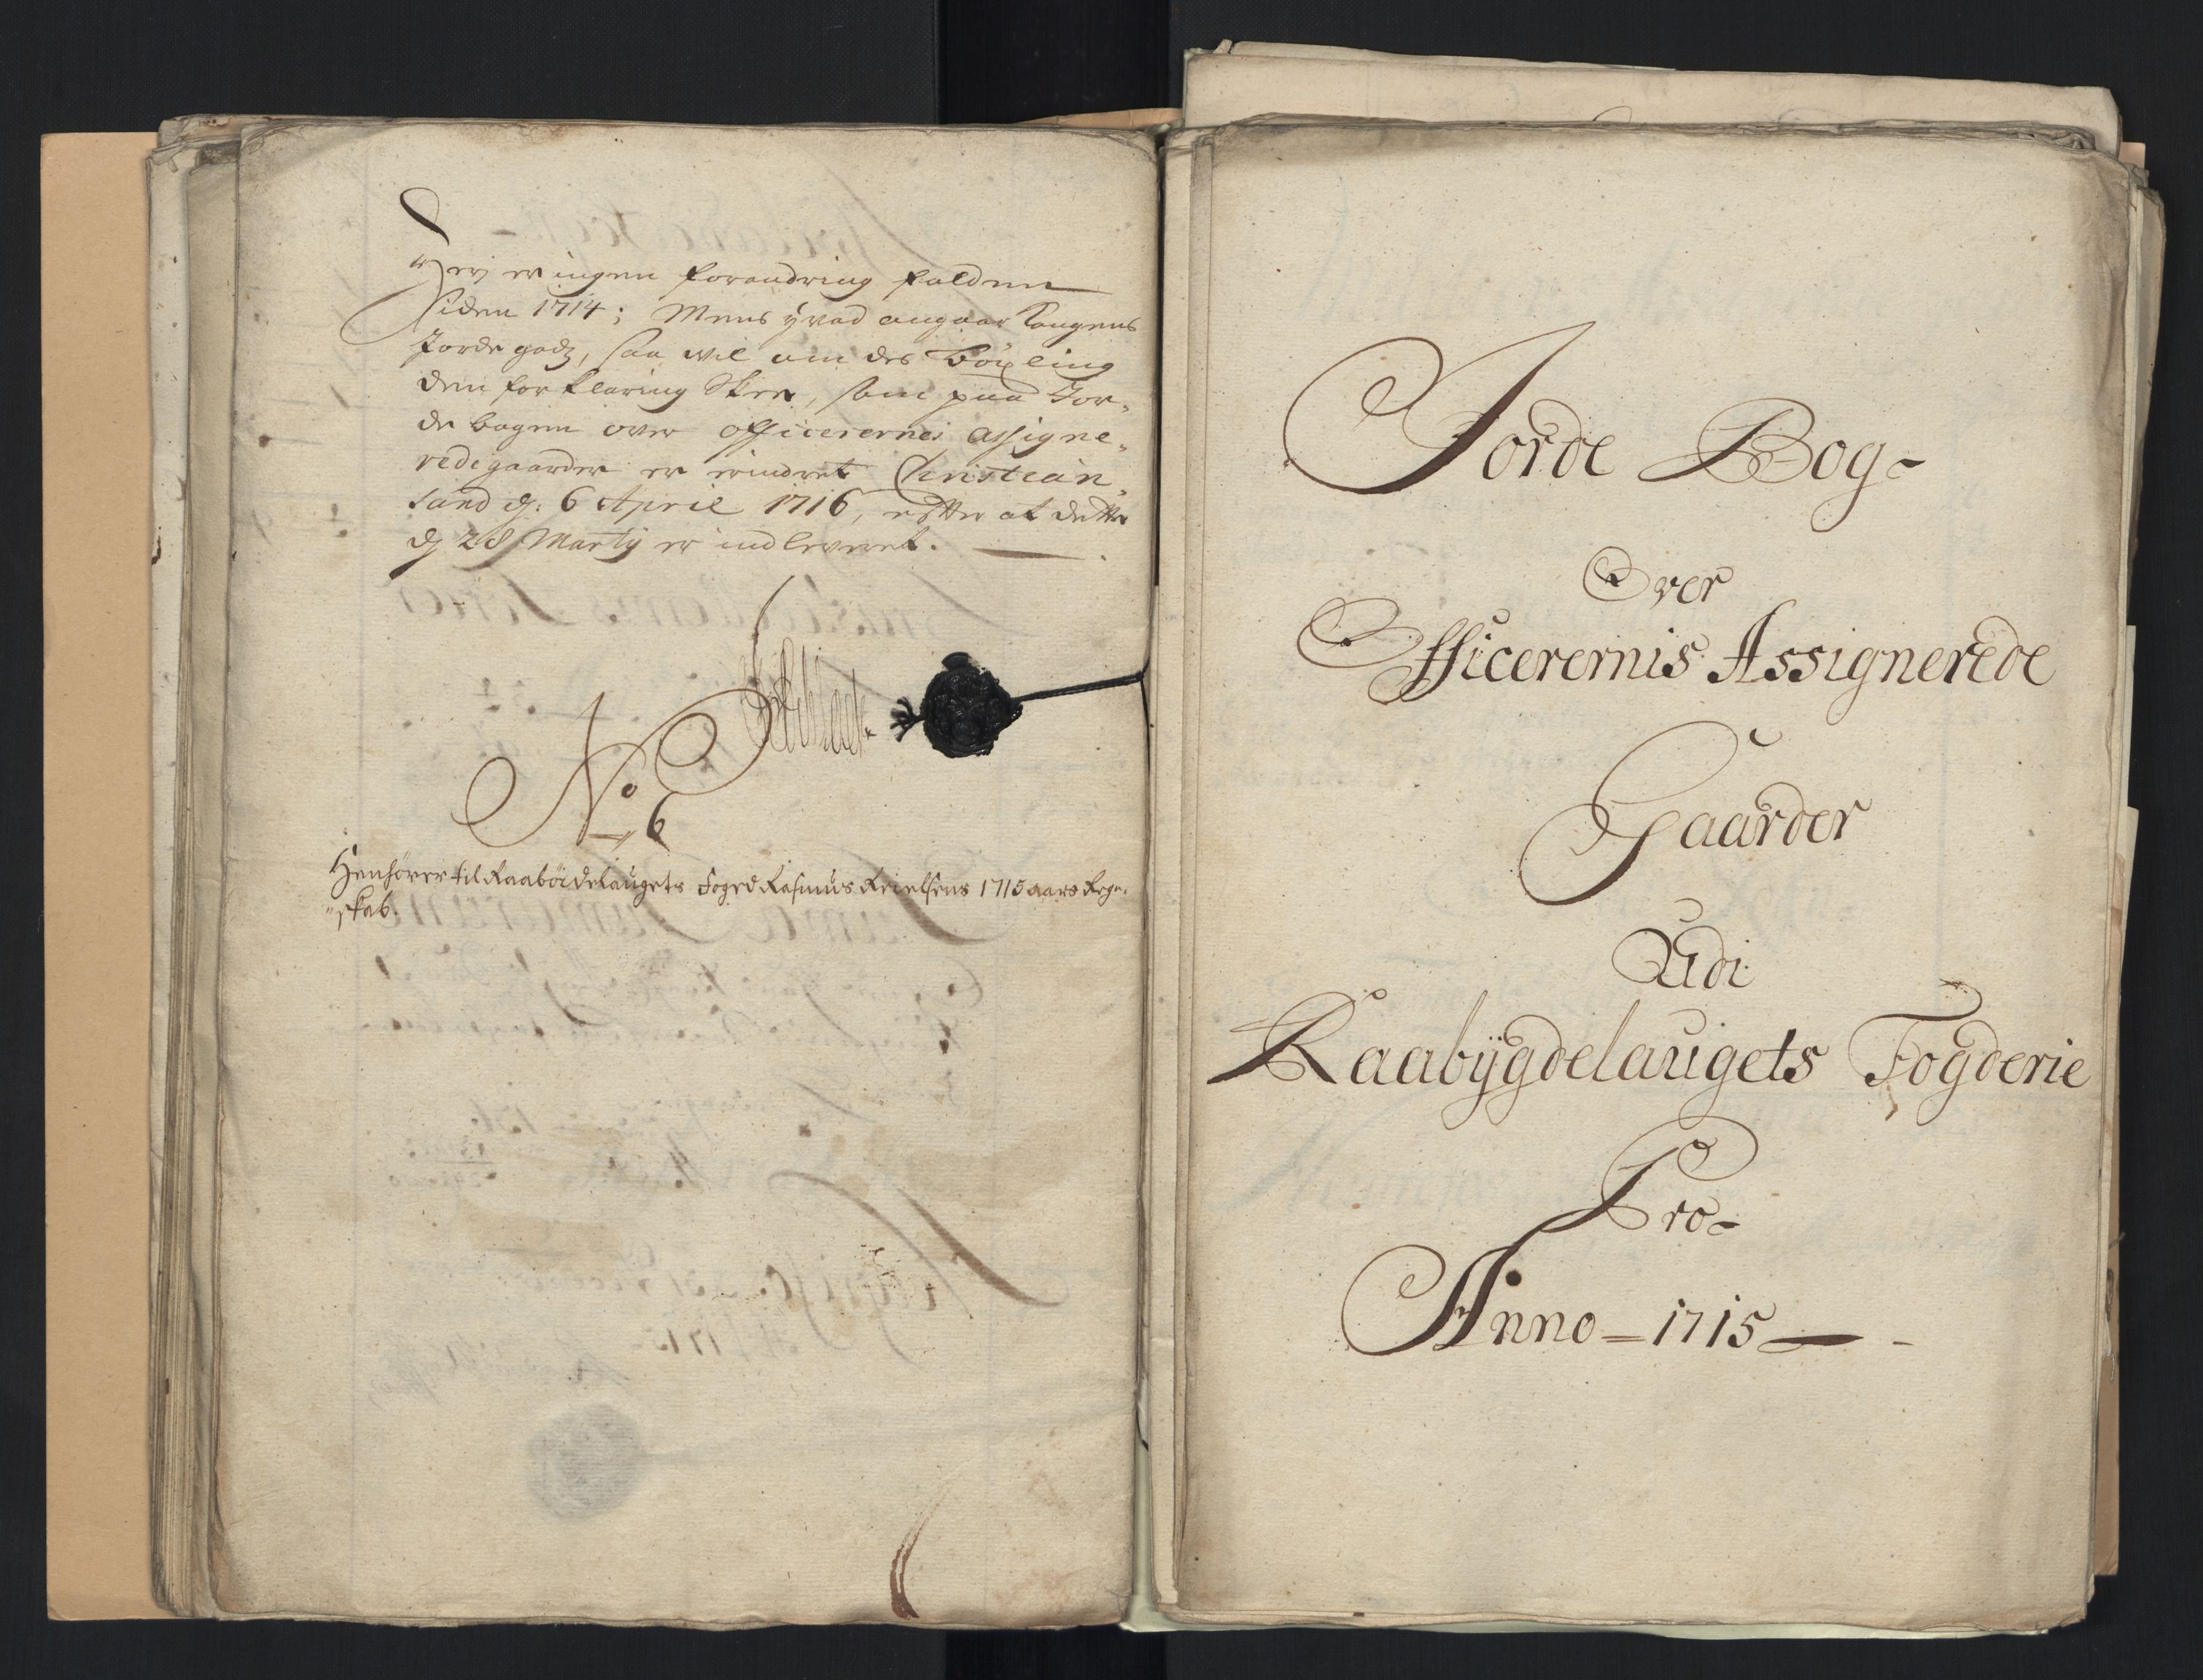 Herj er ingen forandring falden
siden 1714; Mens hvad angaar Kongens
Jorde godz, saa vil om des böxling
den forklaring skee, som paa Jor-
de bogen over officerernes assigne-
rede gaarder er erindret Christian-
sand d: 6 April 1716, efter at dette
d 28 Marty er indleveret.
No 6
Henhører til Raabøidelaugets Foged Rasmus Kielsens 1715 aars Regn-
"skab.
Jorde Bog-
Over
Officerernis Assignerede
Gaarder
Udi
Raabÿgdelaugets Fogderie
Pro-
Anno - 1715 -